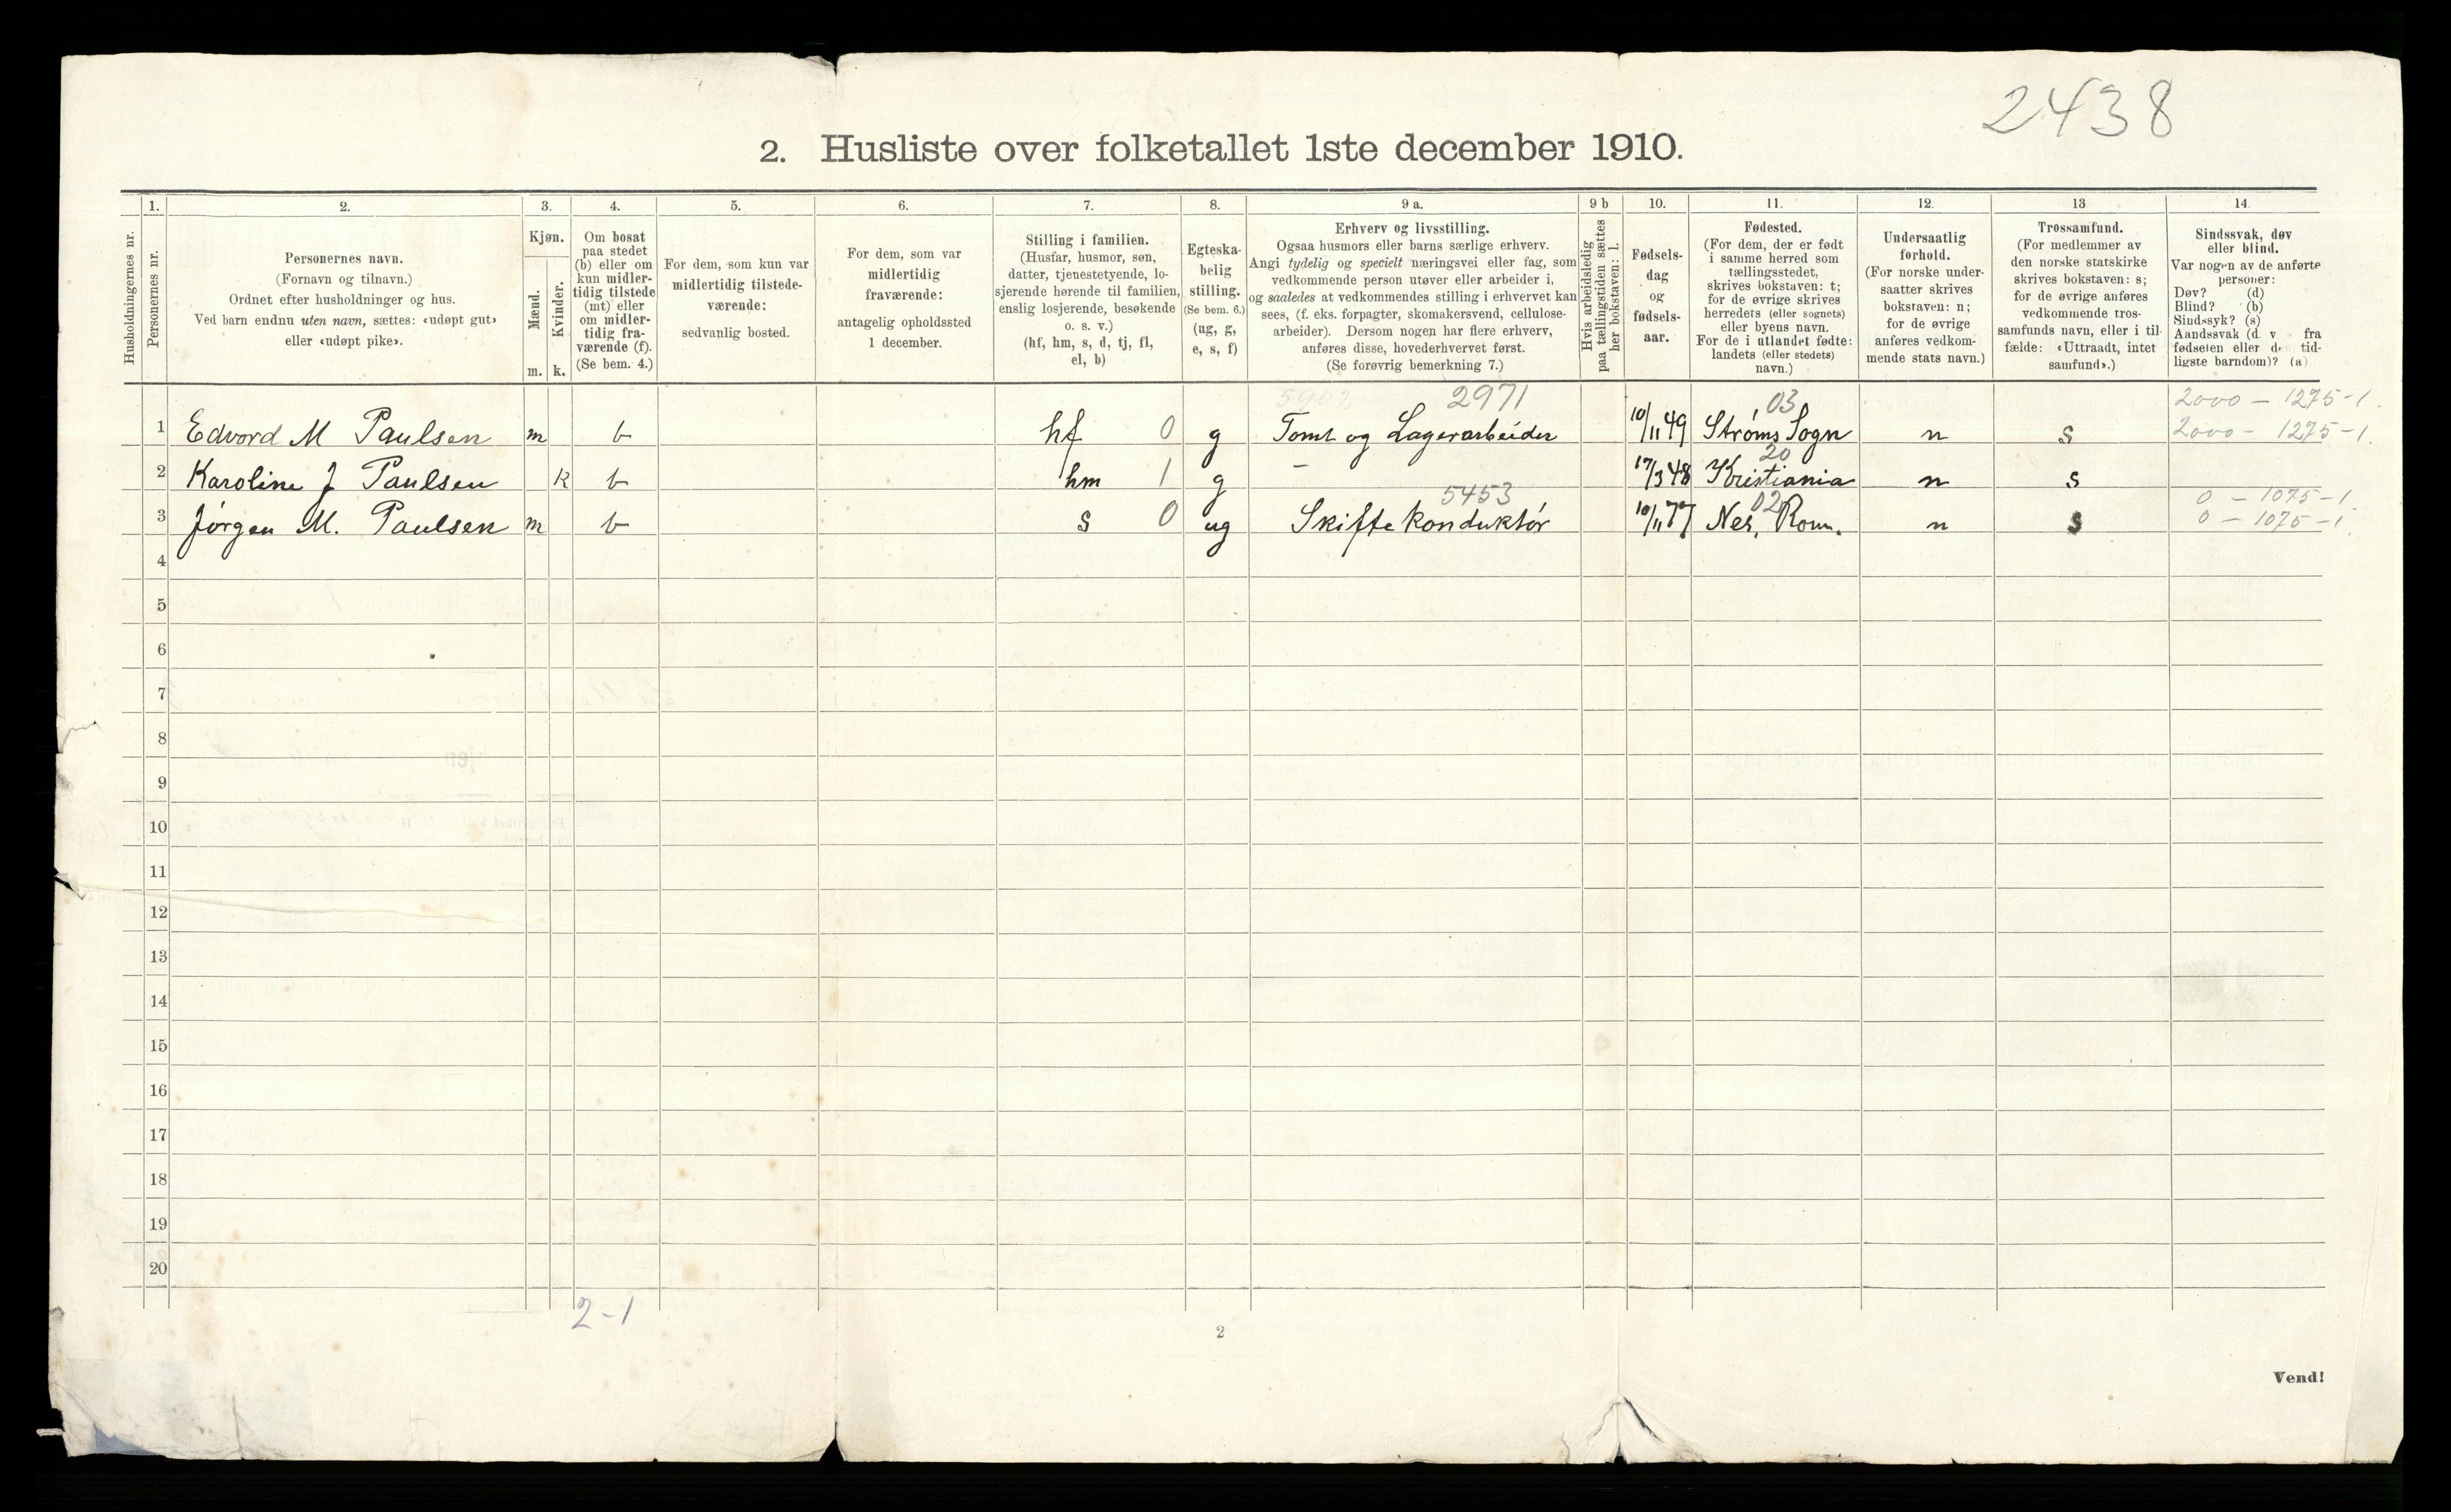 2438
2. Husliste over folketallet 1ste december 1910.
1. 2. 3. 4. 5. 6. 7. 8. 9 a. 9 b 10. 11. 12. 13 14
Husholdningernes nr.
Personernes nr.
Personernes navn.
(Fornavn og tilnavn.)
Ordnet efter husholdninger og hus.
Ved barn endnu uten navn, sættes: «udøpt gut»
eller «udøpt pike».
Kjøn.
Mænd.
Kvinder.
m. k.
Om bosat
paa stedet
(b) eller om
kun midler-
tidig tilstede
(mt) eller
om midler-
tidig fra-
værende (f).
(Se bem. 4.)
For dem, som kun var
midlertidig tilstede-
værende:
sedvanlig bosted.
For dem, som var
midlertidig
fraværende:
antagelig opholdssted
1 december.
Stilling i familien.
(Husfar, husmor, søn,
datter, tjenestetyende, lo-
sjerende hørende til familien,
enslig losjerende, besøkende
o. s. v.)
(hf, hm, s, d, tj, fl,
el, b)
Egteska-
belig
stilling.
(Se bem. 6.)
(ug, g,
e, s, f)
Erhverv og livsstilling.
Ogsaa husmors eller barns særlige erhverv.
Angi tydelig og specielt næringsvei eller fag, som
vedkommende person utøver eller arbeider i,
og saaledes at vedkommendes stilling i erhvervet kan
sees, (f. eks. forpagter, skomakersvend, cellulose-
arbeider). Dersom nogen har flere erhverv,
anføres disse, hovederhvervet først.
(Se forøvrig bemerkning 7.)
Hvis arbeidsledig
paa tællingstiden sættes
her bokstaven: l.
Fødsels-
dag
og
fødsels-
aar.
Fødested.
(For dem, der er født
i samme herred som
tællingsstedet,
skrives bokstaven: t;
for de øvrige skrives
herredets (eller sognets)
eller byens navn.
For de i utlandet fødte:
landets (eller stedets)
navn.)
Undersaatlig
forhold.
(For norske under-
saatter skrives
bokstaven: n;
for de øvrige
anføres vedkom-
mende stats navn.)
Trossamfund.
(For medlemmer av
den norske statskirke
skrives bokstaven: s;
for de øvrige anføres
vedkommende tros-
samfunds navn, eller i til-
fælde: «Uttraadt, intet
samfund».)
Sindssvak, døv
eller blind.
Var nogen av de anførte
personer:
Døv? (d)
Blind? (b)
Sindssyk? (s)
Aandssvak (d. v fra
fødselen eller de tid-
ligste barndom)? (a)
5902 2971 03 2000 - 1275-1.
1 Edvord M Paulsen m b hf 0 g Tomt og Lagerarbeider 10/11 49 Strøms Sogn n s 2000 - 1275-1.
20
2 Karoline J Paulsen k b hm 1 g - 17/3 48 Kristiania n s
5453 02 0 - 1075-1
3 Jörgen M. Paulsen m b s 0 ug Skiftekonduktör 10/11 77 Nes, Rom. n s 0 - 1075-1
4
5
6
7
8
9
10
11
12
13
14
15
16
17
18
19
20
2-1
2
Vend!